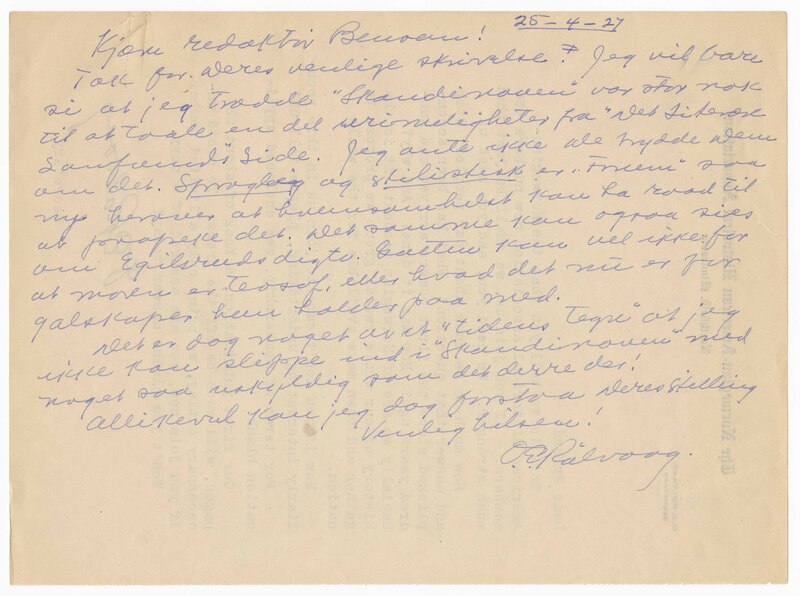 25-4-27
Kjære redaktør Benson!
Tak for Deres venlige skrivelse! Jeg vil bare
si at jeg trodde "Skandinaven" var stor nok
til at taale en del urimeligheter fra "Det Literære
Samfund's" Side. Jeg ante ikke de brydde Dem
om det. Sproglig og stilistisk er "Fruen" saa
at hvemsomhelst kan ha raad til
at paapeke det. Det samme kan ogsaa sies
om Egilsruds digte. Gutten kan vel ikke for
at moren er teosof, eller hvad det nu er for
galskaper hun holder paa med.
Det er dog noget av et "tidens Tegn" at jeg
ikke kan slippe ind i "Skandinaven" med
noget saa uskyldig som det derre der!
Allikevel kan jeg dog forstaa Deres Stilling
Venlig hilsen!
O.E. Rølvaag.